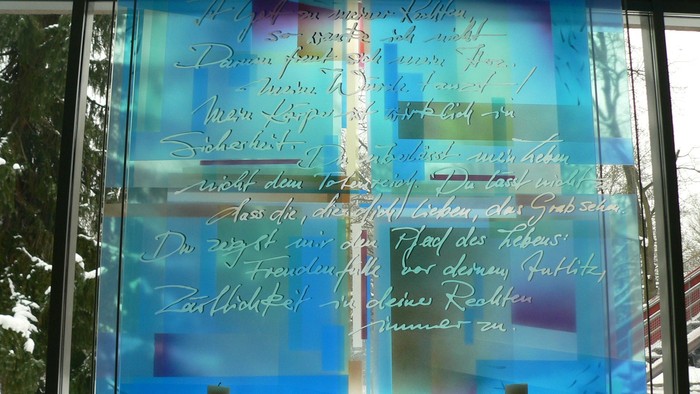 zu meiner Rechten,
so wanke ich nicht
Darum freut sich mein Herz.
meine Würde tanzt – !
Mein Körper ist wirklich in
Sicherheit. Du überlässt mein Leben
nicht dem Totenreich. Du lässt nicht zu,
dass die, die dich lieben, das Grab sehn.
Du zeigst mir den Pfad des Lebens:
Freudenfülle vor deinem Antlitz,
Zärtlichkeit in deiner Rechten
immerzu.